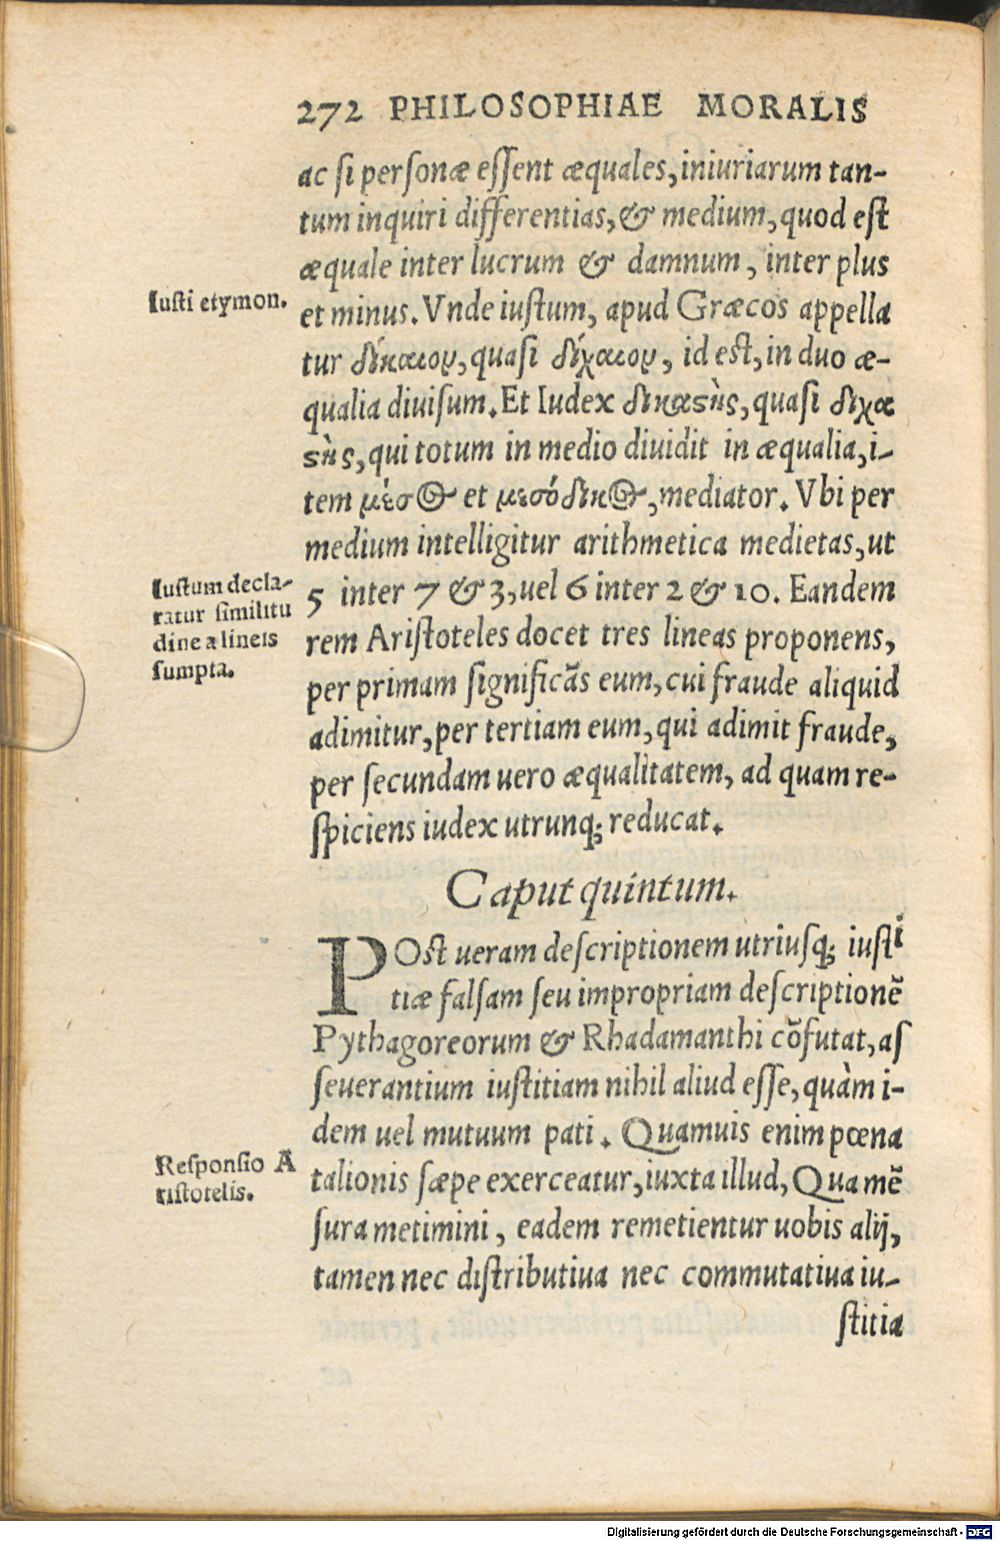 272 PHILOSOPHIAE MORALIS
ac ſi perſonæ eſſent æquales, iniuriarum tan-
tum inquiri differentias, & medium, quod eſt
æquale inter lucrum & damnum, inter plus
Iuſti etymon.
et minus. Vnde iuſtum, apud Græcos appella
tur δίκαιον, quaſi δίχαιον, id eſt, in duo æ-
qualia diuiſum. Et Iudex δικαϛὴς, quaſi διχα
ϛὴς, qui totum in medio diuidit in æqualia, i-
tem μέσος et μεσόδικος, mediator. Vbi per
medium intelligitur arithmetica medietas, ut
Iuſtum decla-
ratur ſimilitu
dine a lineis
ſumpta.
5 inter 7 & 3, uel 6 inter 2 & 10. Eandem
rem Ariſtoteles docet tres lineas proponens,
per primam ſignificãs eum, cui fraude aliquid
adimitur, per tertiam eum, qui adimit fraude,
per ſecundam uero æqualitatem, ad quam re-
ſpiciens iudex utrunq; reducat.
Caput quintum.
POſt ueram deſcriptionem utriuſq; iuſti
tiæ falſam ſeu impropriam deſcriptionẽ
Pythagoreorum & Rhadamanthi cõfutat, aſ
ſeuerantium iuſtitiam nihil aliud eſſe, quàm i-
dem uel mutuum pati. Quamuis enim pœna
Reſponſio A
riſtotelis.
talionis ſæpe exerceatur, iuxta illud, Qua mẽ
ſura metimini, eadem remetientur uobis alij,
tamen nec diſtributiua nec commutatiua iu-
ſtitia
Digitalisierung gefördert durch die Deutsche Forschungsgemeinschaft - DFG